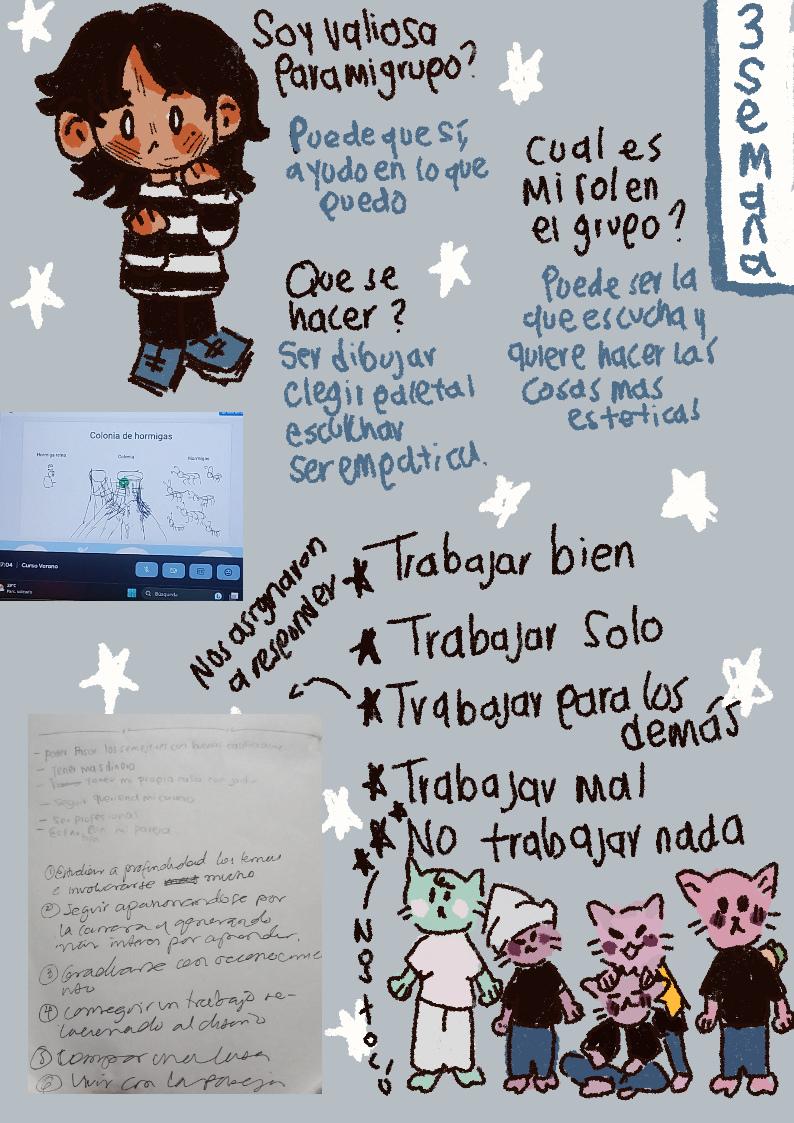 Soy valiosa
Para mi grupo?
Puede que sí,
ayudo en lo que
puedo
Cual es
Mi rol en
el grupo?
Puede ser la
que escucha y
quiere hacer las
cosas mas
esteticas
3 semana
Que se
hacer?
Ser dibujar
elegir paletal
escuchar
ser empatica.
Colonia de hormigas
Hormiga reina
Colonia
Hormigas
7:04 | Curso Verano
Búsqueda
Nos asignaron
a responder
Trabajar bien
Trabajar Solo
Trabajar para los
demás
Trabajar mal
No trabajar nada
Nos tocó
- poder pasar los semestres con buenas
- Tener mas dinero
- tener mi propia casa con
- Seguir queriend mi carrera
- Ser profesional
- con mi pareja
① Estudiar a profundidad los temas
e involucrarse mucho
② Seguir apasionandose por
la carrera y generando
más interes por aprender.
③ Graduarse con reconocimie
nto
④ conseguir un trabajo re-
lacionado al diseño
⑤ Comprar una casa
⑥ Vivir con la pareja